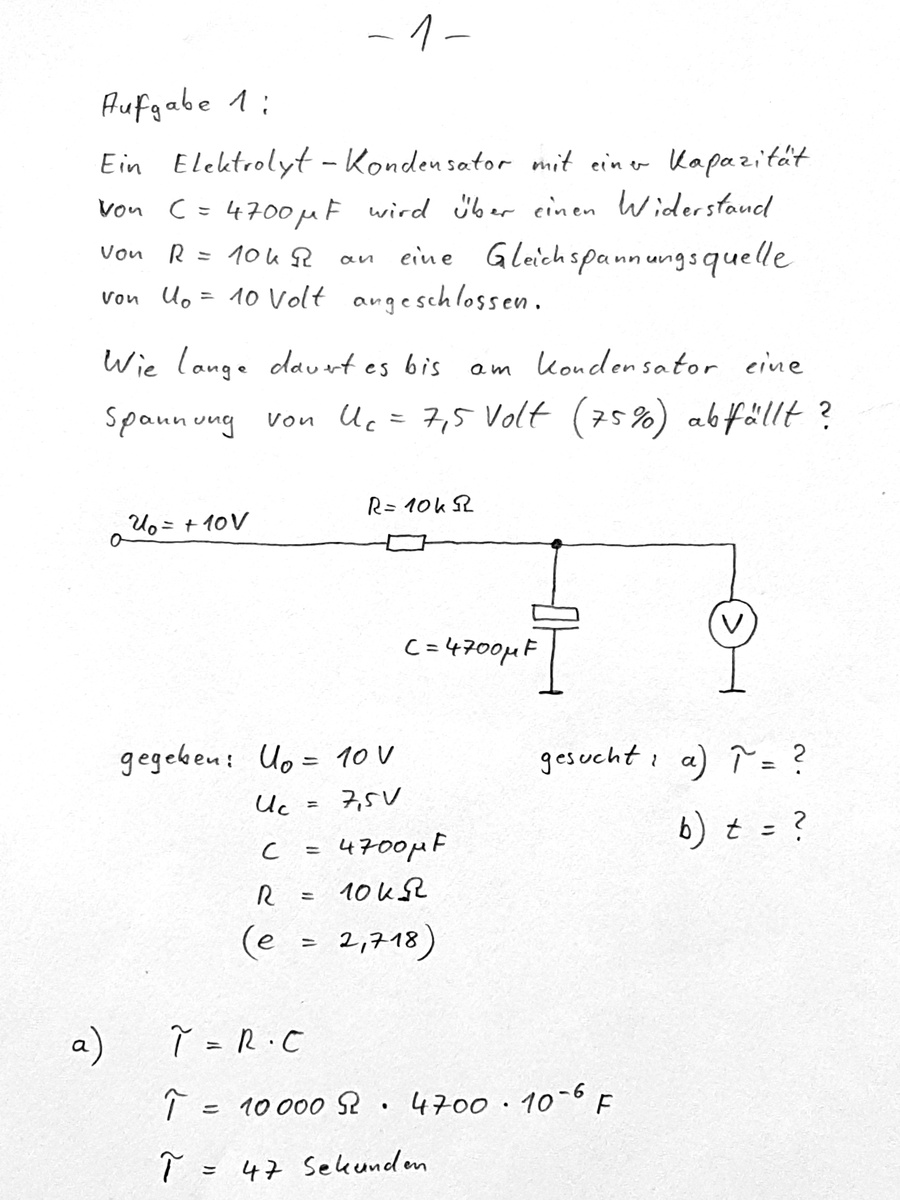 - 1 -
Aufgabe 1:
Ein Elektrolyt-Kondensator mit einer Kapazität
von C = 4700µF wird über einen Widerstand
von R = 10kΩ an eine Gleichspannungsquelle
von U₀ = 10 Volt angeschlossen.
Wie lange dauert es bis am Kondensator eine
Spannung von U_c = 7,5 Volt (75%) abfällt?
R = 10kΩ
U₀ = +10V
V
C = 4700µF
gegeben: U₀ = 10V gesucht: a) τ = ?
U_c = 7,5V
b) t = ?
C = 4700µF
R = 10kΩ
(e = 2,718)
a) τ = R · C
τ = 10000 Ω · 4700 · 10⁻⁶ F
τ = 47 Sekunden